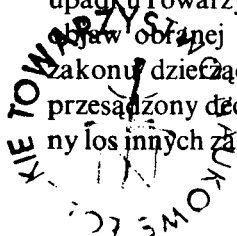 upadku Towarzy
objaw obranej
zakonu dzierżąc
przesądzony dec
ny los innych za
KIE TOWARZYSTWO NAUKOWE